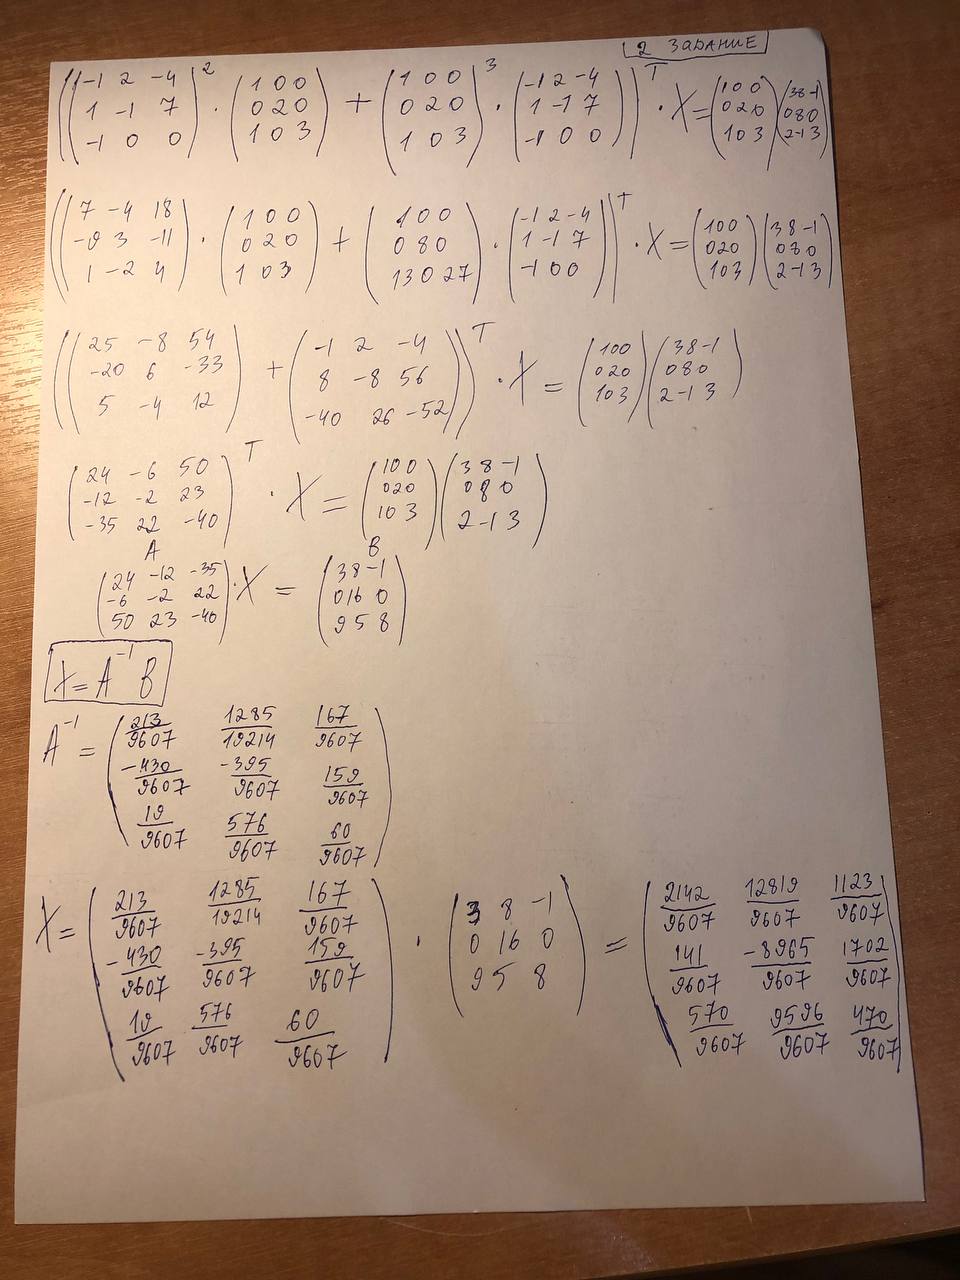 2 ЗАДАНИЕ
((-1 2 -4; 1 -1 7; -1 0 0)² · (1 0 0; 0 2 0; 1 0 3) + (1 0 0; 0 2 0; 1 0 3)³ · (-1 2 -4; 1 -1 7; -1 0 0))ᵀ · X = (1 0 0; 0 2 0; 1 0 3)(3 8 -1; 0 8 0; 2 -1 3)
((7 -4 18; -9 3 -11; 1 -2 4) · (1 0 0; 0 2 0; 1 0 3) + (1 0 0; 0 8 0; 13 0 27) · (-1 2 -4; 1 -1 7; -1 0 0))ᵀ · X = (1 0 0; 0 2 0; 1 0 3)(3 8 -1; 0 8 0; 2 -1 3)
((25 -8 54; -20 6 -33; 5 -4 12) + (-1 2 -4; 8 -8 56; -40 26 -52))ᵀ · X = (1 0 0; 0 2 0; 1 0 3)(3 8 -1; 0 8 0; 2 -1 3)
(24 -6 50; -12 -2 23; -35 22 -40)ᵀ · X = (1 0 0; 0 2 0; 1 0 3)(3 8 -1; 0 8 0; 2 -1 3)
A B
(24 -12 -35; -6 -2 22; 50 23 -40) · X = (3 8 -1; 0 16 0; 9 5 8)
X = A⁻¹ B
A⁻¹ = (213/9607 1285/19214 167/9607; -430/9607 -395/9607 159/9607; 19/9607 576/9607 60/9607)
X = (213/9607 1285/19214 167/9607; -430/9607 -395/9607 159/9607; 19/9607 576/9607 60/9607) · (3 8 -1; 0 16 0; 9 5 8) = (2142/9607 12819/9607 1123/9607; 141/9607 -8965/9607 1702/9607; 570/9607 9596/9607 470/9607)